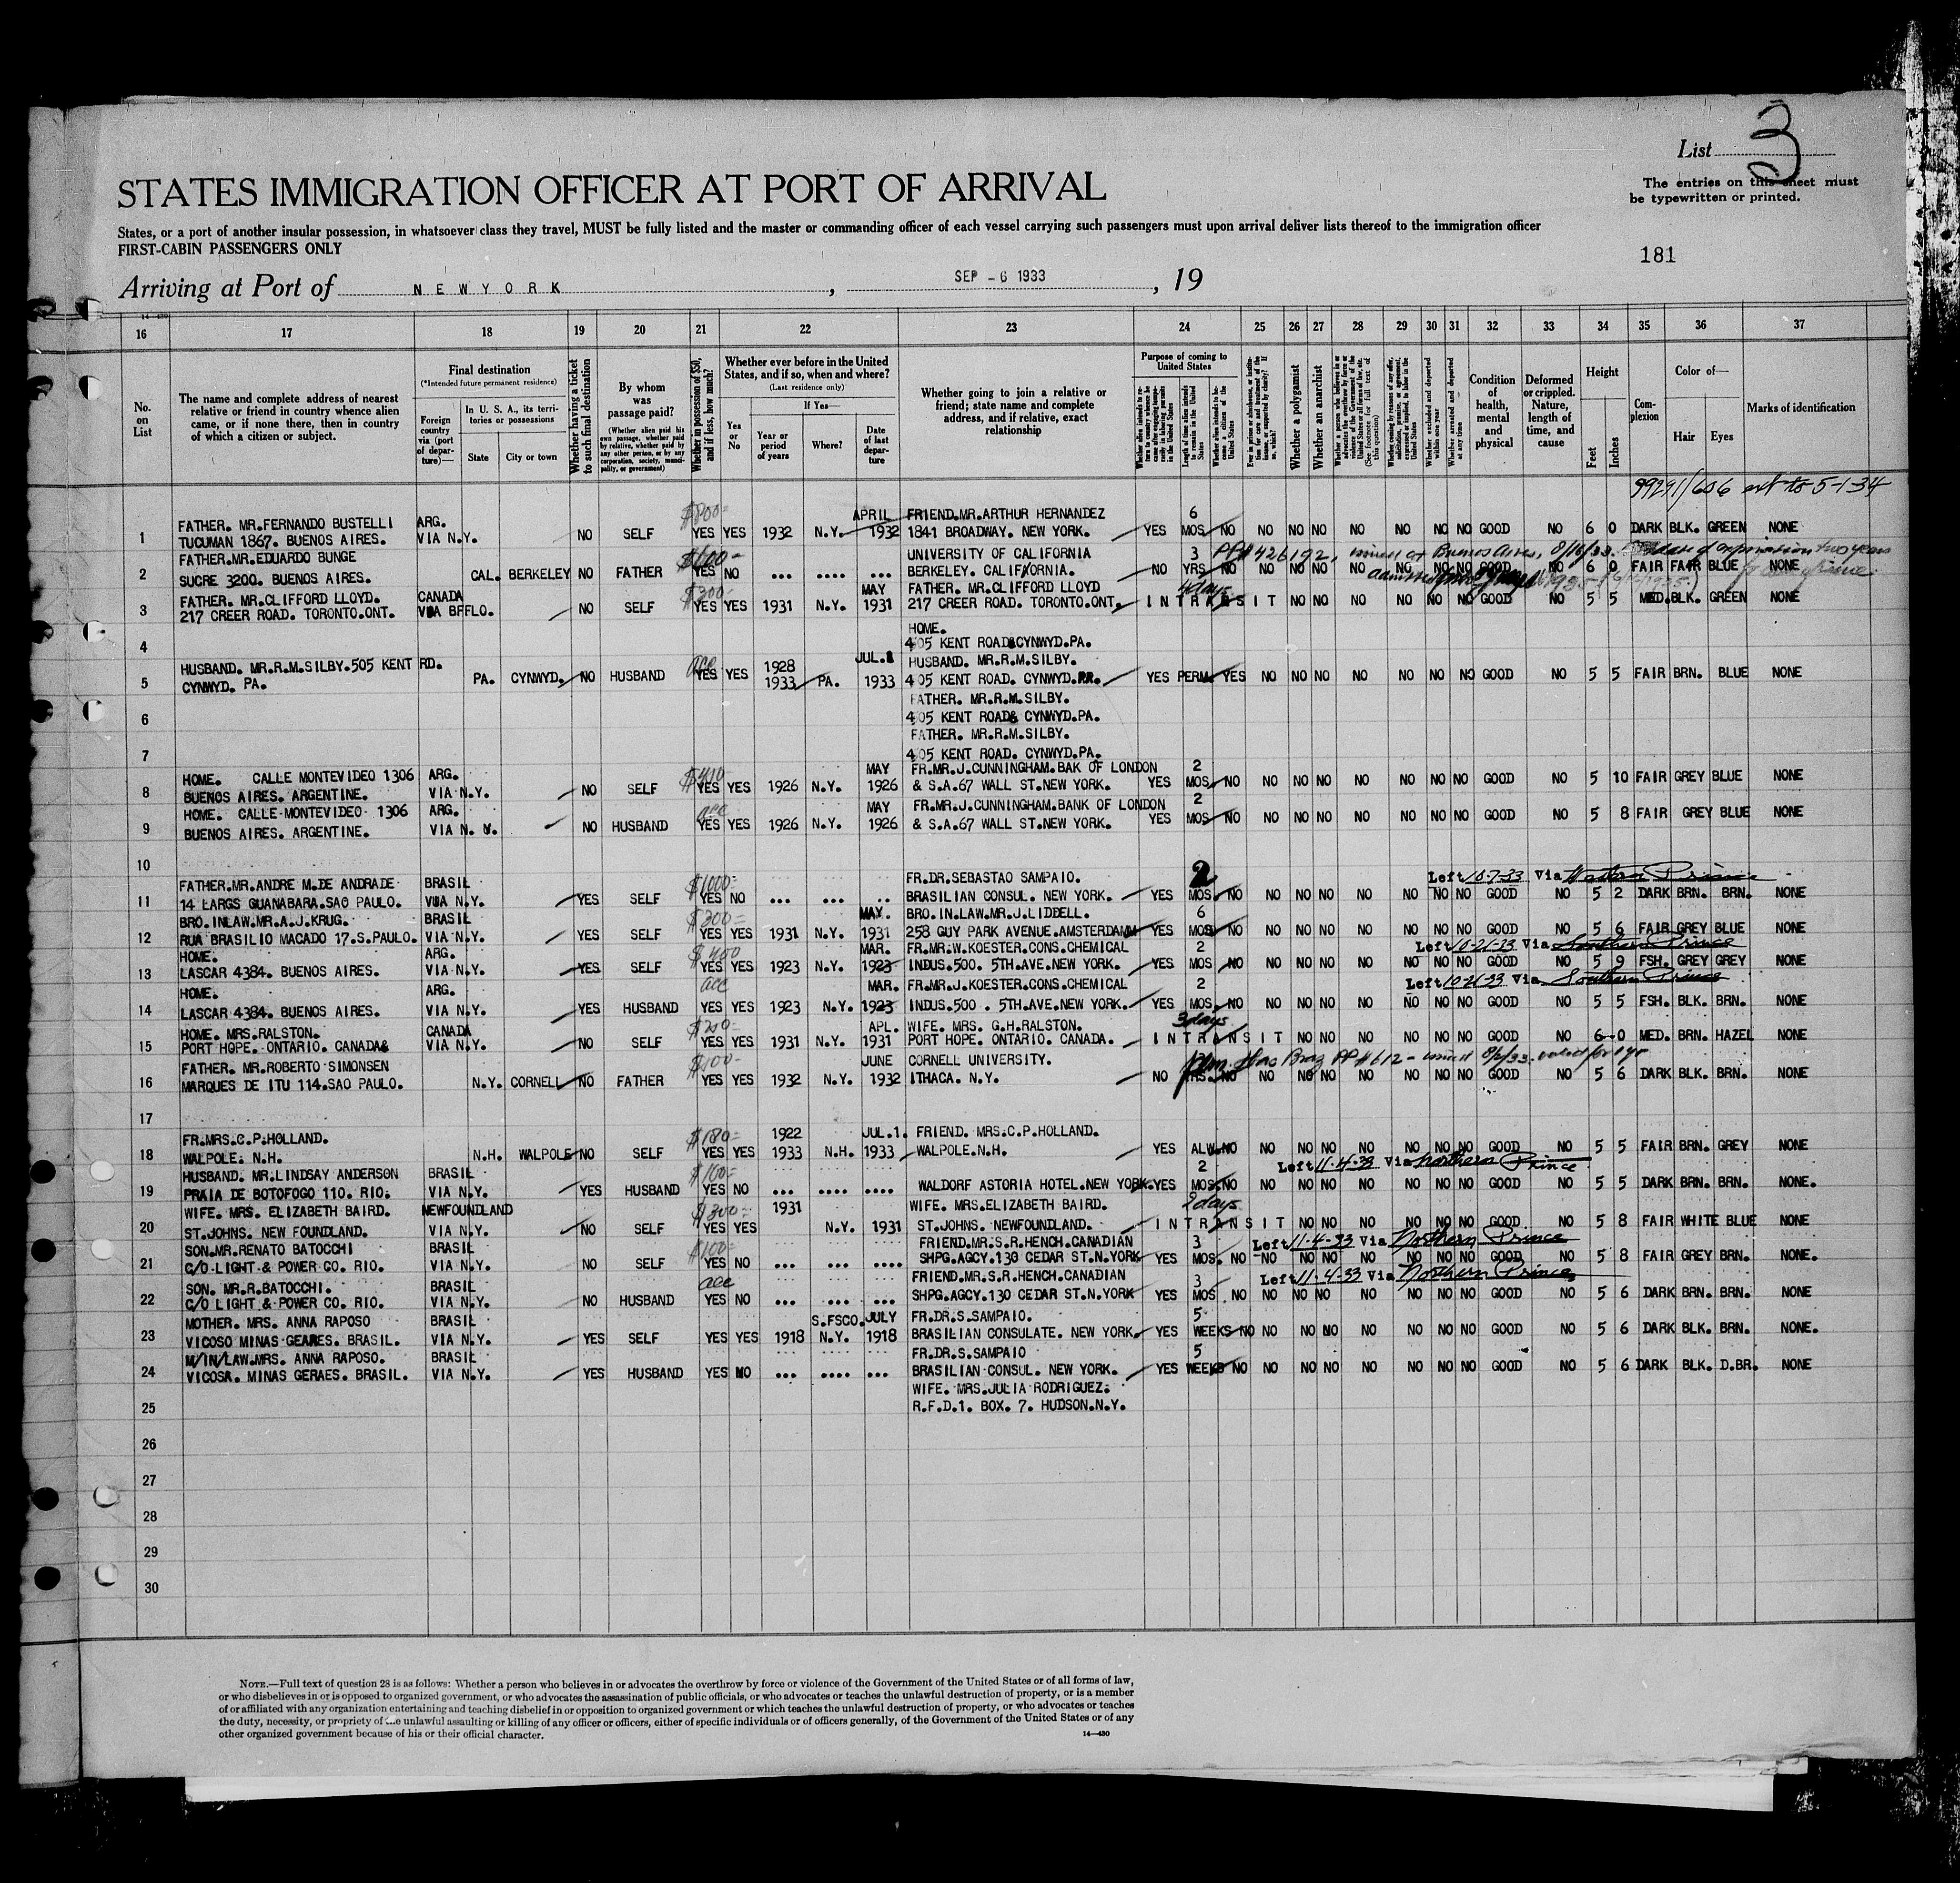 List 3
The entries on this sheet must
be typewritten or printed.
STATES IMMIGRATION OFFICER AT PORT OF ARRIVAL
States, or a port of another insular possession, in whatsoever class they travel, MUST be fully listed and the master or commanding officer of each vessel carrying such passengers must upon arrival deliver lists thereof to the immigration officer
FIRST-CABIN PASSENGERS ONLY
181
Arriving at Port of NEW YORK, SEP - 6 1933, 19
16 17 18 19 20 21 22 23 24 25 26 27 28 29 30 31 32 33 34 35 36 37
No. on List
The name and complete address of nearest relative or friend in country whence alien came, or if none there, then in country of which a citizen or subject.
Final destination
(*Intended future permanent residence)
Foreign country via (port of departure)—
In U. S. A., its territories or possessions
State
City or town
Whether having a ticket to such final destination
By whom was passage paid?
(Whether alien paid his own passage, whether paid by relative, whether paid by any other person, or by any corporation, society, municipality, or government)
Whether in possession of $50, and if less, how much?
Whether ever before in the United States, and if so, when and where?
(Last residence only)
Yes or No
If Yes—
Year or period of years
Where?
Date of last departure
Whether going to join a relative or friend; state name and complete address, and if relative, exact relationship
Purpose of coming to United States
Length of time alien intends to remain in the United States
Whether alien intends to become a citizen of the United States
Whether a polygamist
Whether an anarchist
Whether arrested and deported at any time
Condition of health, mental and physical
Deformed or crippled. Nature, length of time, and cause
Height
Feet
Inches
Complexion
Color of—
Hair
Eyes
Marks of identification
99291/606 ext to 5-1-34
1 FATHER. MR.FERNANDO BUSTELLI ARG. $800= APRIL FRIEND.MR.ARTHUR HERNANDEZ 6
TUCUMAN 1867. BUENOS AIRES. VIA N.Y. NO SELF YES YES 1932 N.Y. 1932 1841 BROADWAY. NEW YORK. YES MOS. NO NO NO NO NO NO NO NO GOOD NO 6 0 DARK BLK. GREEN NONE
2 FATHER.MR.EDUARDO BUNGE UNIVERSITY OF CALIFORNIA 3 PP# 426192, issued at Buenos Aires, 8/16/33. date of expiration two years
SUCRE 3200. BUENOS AIRES. CAL. BERKELEY NO FATHER YES NO ... .... ... BERKELEY. CALIFORNIA. NO YRS. NO NO NO NO NO NO NO NO GOOD NO 6 0 FAIR FAIR BLUE NONE
3 FATHER. MR.CLIFFORD LLOYD. CANADA $300- MAY FATHER. MR.CLIFFORD LLOYD 4 days
217 CREER ROAD. TORONTO.ONT. VIA BFFLO. NO SELF YES YES 1931 N.Y. 1931 217 CREER ROAD. TORONTO.ONT. INTRANSIT NO NO NO NO NO NO GOOD NO 5 5 MED.BLK. GREEN NONE
4 HOME.
405 KENT ROAD CYNWYD.PA.
5 HUSBAND. MR.R.M.SILBY.505 KENT RD. acc 1928 JUL.1 HUSBAND. MR.R.M.SILBY.
CYNWYD. PA. PA. CYNWYD. NO HUSBAND YES YES 1933 PA. 1933 405 KENT ROAD. CYNWYD. YES PERM. YES NO NO NO NO NO NO NO GOOD NO 5 5 FAIR BRN. BLUE NONE
6 FATHER. MR.R.M.SILBY.
405 KENT ROAD CYNWYD.PA.
7 FATHER. MR.R.M.SILBY.
405 KENT ROAD. CYNWYD.PA.
8 HOME. CALLE MONTEVIDEO 1306 ARG. $410 MAY FR.MR.J.CUNNINGHAM.BAK OF LONDON 2
BUENOS AIRES. ARGENTINE. VIA N.Y. NO SELF YES YES 1926 N.Y. 1926 & S.A.67 WALL ST.NEW YORK. YES MOS. NO NO NO NO NO NO NO NO GOOD NO 5 10 FAIR GREY BLUE NONE
9 HOME. CALLE MONTEVIDEO 1306 ARG. acc MAY FR.MR.J.CUNNINGHAM.BANK OF LONDON 2
BUENOS AIRES. ARGENTINE. VIA N. Y. NO HUSBAND YES YES 1926 N.Y. 1926 & S.A.67 WALL ST.NEW YORK. YES MOS. NO NO NO NO NO NO NO NO GOOD NO 5 8 FAIR GREY BLUE NONE
10
11 FATHER.MR.ANDRE M.DE ANDRADE BRASIL $1000= FR.DR.SEBASTAO SAMPAIO. 2 Left 10-7-33 Via Western Prince
14 LARGS GUANABARA.SAO PAULO. VIA N.Y. YES SELF YES NO ... ... .. BRASILIAN CONSUL. NEW YORK. YES MOS. NO NO NO NO NO NO NO NO GOOD NO 5 2 DARK BRN. BRN. NONE
12 BRO. INLAW.MR.A.J.KRUG. BRASIL $200= MAY. BRO. IN.LAW.MR.J.LIDDELL. 6
RUA BRASILIO MACADO 17.S.PAULO. VIA N.Y. YES SELF YES YES 1931 N.Y. 1931 258 GUY PARK AVENUE.AMSTERDAM YES MOS. NO NO NO NO NO NO NO NO GOOD NO 5 6 FAIR GREY BLUE NONE
13 HOME. ARG. $400 MAR. FR.MR.W.KOESTER.CONS.CHEMICAL 2 Left 10-21-33 Via Southern Prince
LASCAR 4384. BUENOS AIRES. VIA N.Y. YES SELF YES YES 1923 N.Y. 1923 INDUS.500. 5TH.AVE.NEW YORK. YES MOS NO NO NO NO NO NO NO NO GOOD NO 5 9 FSH. GREY GREY NONE
14 HOME. ARG. acc MAR. FR.MR.J.KOESTER.CONS.CHEMICAL 2 Left 10-21-33 Via Southern Prince
LASCAR 4384. BUENOS AIRES. VIA N.Y. YES HUSBAND YES YES 1923 N.Y. 1923 INDUS.500 . 5TH.AVE.NEW YORK. YES MOS. NO NO NO NO NO NO NO NO GOOD NO 5 5 FSH. BLK. BRN. NONE
15 HOME. MRS.RALSTON. CANADA $200= APL. WIFE. MRS. G.H.RALSTON. 3 days
PORT HOPE. ONTARIO. CANADA& VIA N.Y. NO SELF YES YES 1931 N.Y. 1931 PORT HOPE. ONTARIO. CANADA. INTRANSIT NO NO NO NO NO NO GOOD NO 6-0 MED. BRN. HAZEL NONE
16 FATHER. MR.ROBERTO SIMONSEN $100- JUNE CORNELL UNIVERSITY. Has Braz PP #612 - issued 8/6/33. valid for 1 yr
MARQUES DE ITU 114.SAO PAULO. N.Y. CORNELL NO FATHER YES YES 1932 N.Y. 1932 ITHACA. N.Y. NO YRS. NO NO NO NO NO NO NO NO GOOD NO 5 6 DARK BLK. BRN. NONE
17
18 FR.MRS.C.P.HOLLAND. $180= 1922 JUL.1. FRIEND. MRS.C.P.HOLLAND.
WALPOLE. N.H. N.H. WALPOLE NO SELF YES YES 1933 N.H. 1933 WALPOLE.N.H. YES ALW. NO NO NO NO NO NO NO NO GOOD NO 5 5 FAIR BRN. GREY NONE
19 HUSBAND. MR.LINDSAY ANDERSON BRASIL $100= 2 Left 11-4-33 Via Northern Prince
PRAIA DE BOTOFOGO 110. RIO. VIA N.Y. YES HUSBAND YES NO ... .... .... WALDORF ASTORIA HOTEL.NEW YORK. YES MOS. NO NO NO NO NO NO NO NO GOOD NO 5 5 DARK BRN. BRN. NONE.
20 WIFE. MRS. ELIZABETH BAIRD. NEWFOUNDLAND $300= 1931 WIFE. MRS.ELIZABETH BAIRD. 2 days
ST.JOHNS. NEW FOUNDLAND. VIA N.Y. NO SELF YES YES N.Y. 1931 ST.JOHNS. NEWFOUNDLAND. INTRANSIT NO NO NO NO NO NO GOOD NO 5 8 FAIR WHITE BLUE NONE
21 SON.MR.RENATO BATOCCHI BRASIL $100= FRIEND.MR.S.R.HENCH.CANADIAN 3 Left 11-4-33 Via Northern Prince
C/O LIGHT & POWER CO. RIO. VIA N.Y. NO SELF YES NO ... ... .... SHPG.AGCY.130 CEDAR ST.N.YORK YES MOS. NO NO NO NO NO NO NO NO GOOD NO 5 8 FAIR GREY BRN. NONE.
22 SON. MR.R.BATOCCHI. BRASIL acc FRIEND.MR.S.R.HENCH.CANADIAN 3 Left 11-4-33 Via Northern Prince
C/O LIGHT & POWER CO. RIO. VIA N.Y. NO HUSBAND YES NO ... ... ... SHPG.AGCY.130 CEDAR ST.N.YORK YES MOS. NO NO NO NO NO NO NO NO GOOD NO 5 6 DARK BRN. BRN. NONE
23 MOTHER. MRS. ANNA RAPOSO BRASIL S.FSCO. JULY FR.DR.S.SAMPAIO. 5
VICOSO MINAS GEARES. BRASIL. VIA N.Y. YES SELF YES YES 1918 N.Y. 1918 BRASILIAN CONSULATE. NEW YORK. YES WEEKS NO NO NO NO NO NO NO NO GOOD NO 5 6 DARK BLK. BRN. NONE.
24 M/IN/LAW.MRS. ANNA RAPOSO. BRASIL FR.DR.S.SAMPAIO 5
VICOSA. MINAS GERAES. BRASIL. VIA N.Y. YES HUSBAND YES NO ... .... ... BRASILIAN CONSUL. NEW YORK. YES WEEKS NO NO NO NO NO NO NO NO GOOD NO 5 6 DARK BLK. D.BR. NONE
25 WIFE. MRS.JULIA RODRIGUEZ.
R.F.D.1. BOX. 7. HUDSON.N.Y.
26
27
28
29
30
NOTE.—Full text of question 28 is as follows: Whether a person who believes in or advocates the overthrow by force or violence of the Government of the United States or of all forms of law,
or who disbelieves in or is opposed to organized government, or who advocates the assassination of public officials, or who advocates or teaches the unlawful destruction of property, or is a member
of or affiliated with any organization entertaining and teaching disbelief in or opposition to organized government or which teaches the unlawful destruction of property, or who advocates or teaches
the duty, necessity, or propriety of the unlawful assaulting or killing of any officer or officers, either of specific individuals or of officers generally, of the Government of the United States or of any
other organized government because of his or their official character.
14—430